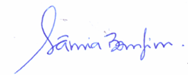 Sâmia Bomfim.